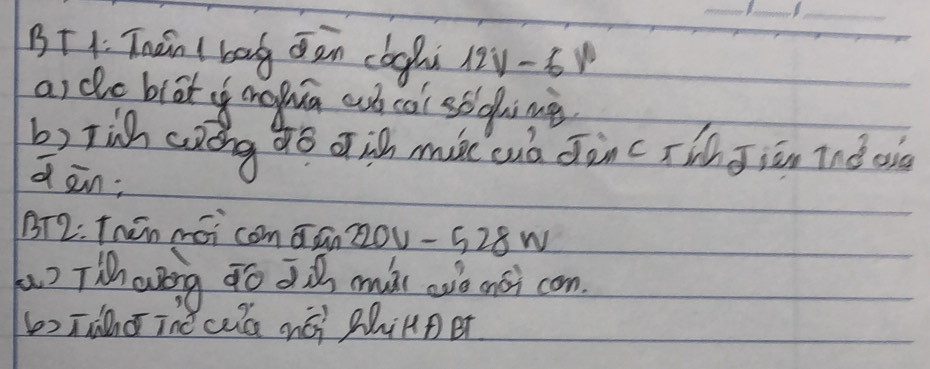 BT1: Trên 1 bóng đèn có ghi 12V - 6W
a) cho biết ý nghĩa của các số ghi này.
b) Tính cường độ định mức của đèn c Tính điện trở của
đèn:
BT2: Trên nồi cơm điện 220V - 528W
a) Tính cường độ định mức của nồi cơm.
b) Tính đ trở của nồi khi HĐBT